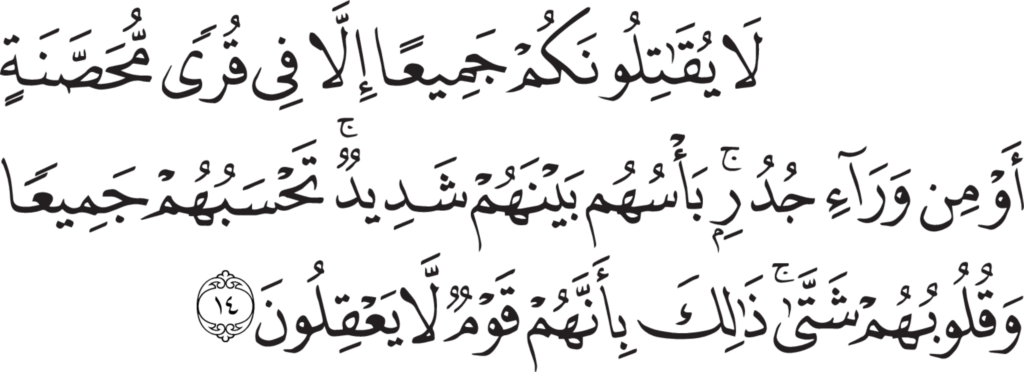 لَا يُقَـٰتِلُونَكُمْ جَمِيعًا إِلَّا فِي قُرًى مُّحَصَّنَةٍ
أَوْ مِن وَرَآءِ جُدُرٍۭ ۚ بَأْسُهُم بَيْنَهُمْ شَدِيدٌ ۚ تَحْسَبُهُمْ جَمِيعًا
وَقُلُوبُهُمْ شَتَّىٰ ۚ ذَٰلِكَ بِأَنَّهُمْ قَوْمٌ لَّا يَعْقِلُونَ ١٤